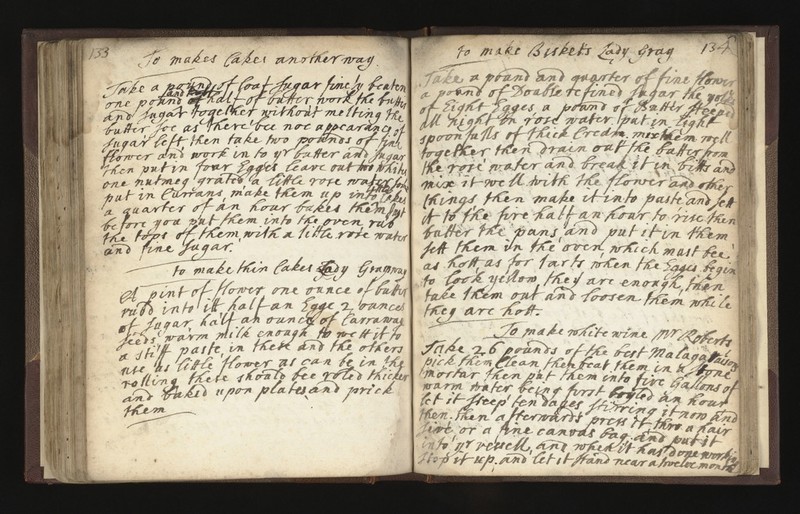 133
To makes Cakes another way
Take a pound of Loaf Sugar finely beaten
one pound and half of butter work the butter
and Sugar together without melting the
butter soe as there bee noe appearance of
Sugar left then take two pounds of fine
flower and work in to yr butter and Sugar
then put in four Egges leave out two whites
one nutmeg grated a little rose water
put in Currans make them up into little Cakes
a quarter of an hour bakes them Just
before you put them into the oven rub
the tops of them with a little rose water
and fine Sugar
to make thin Cakes Lady Grays way
A pint of flower one ounce of butter
rub'd into itt half an Egge 2 ounces
of Sugar half an ounce of Carraway
seeds warm milk enough to wett it to
a stiff paste in these and the others
use as little flower as can be in the
rolling these should bee roled thicker
and baked upon plates and prick
them
134
to make Biskets Lady Gray
Take a pound and quarter of fine flower
a pound of Double refined Sugar the yolks
of Eight Egges a pound of Butter steeped
all night in rose water put in Eight
spoonfulls of thick Cream mix them well
together then drain out the butter from
the rose water and break it in bitts and
mix it well with the flower and other
things then make it into paste and sett
it to the fire half an hour to rise then
butter the pans and put it in them
sett them in the oven which must bee
as hott as for tarts when the Egges begin
to look yellow they are enough, then
take them out and loosen them while
they are hott.
To make white wine Mr Roberts
Take 26 pounds of the best Malaga raisons
pick them Clean then beat them in a
mortar then put them into five Gallons of
warm water being first boyled an hour
let it steep ten dayes stirring it now and
then. then afterwards press it thro a hair
sive or a fine canvas bag and put it
into yr vessell, and when it has done working
stop it up, and let it stand near a twelve month